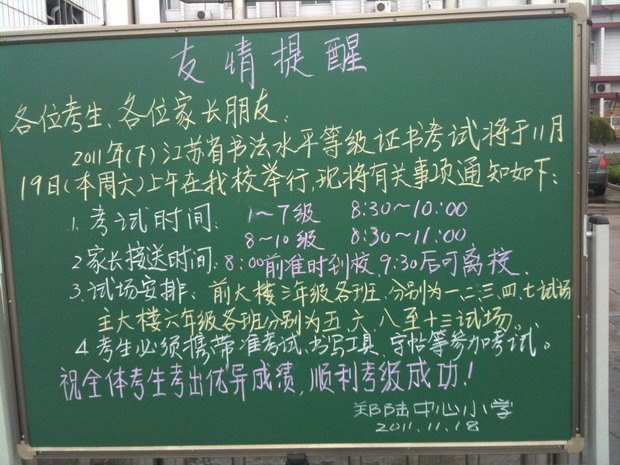 友情提醒
各位考生、各位家长朋友:
2011年(下)江苏省书法水平等级证书考试将于11月
19日(本周六)上午在我校举行,现将有关事项通知如下:
1.考试时间: 1~7级 8:30~10:00
8~10级 8:30~11:00
2.家长接送时间:8:00前准时到校,9:30后可离校.
3.试场安排: 前大楼三年级各班,分别为一、二、三、四、七试场
主大楼六年级各班分别为五、六、八至十三试场。
4.考生必须携带准考试、书写工具、字帖等参加考试。
祝全体考生考出优异成绩,顺利考级成功!
郑陆中心小学
2011.11.18